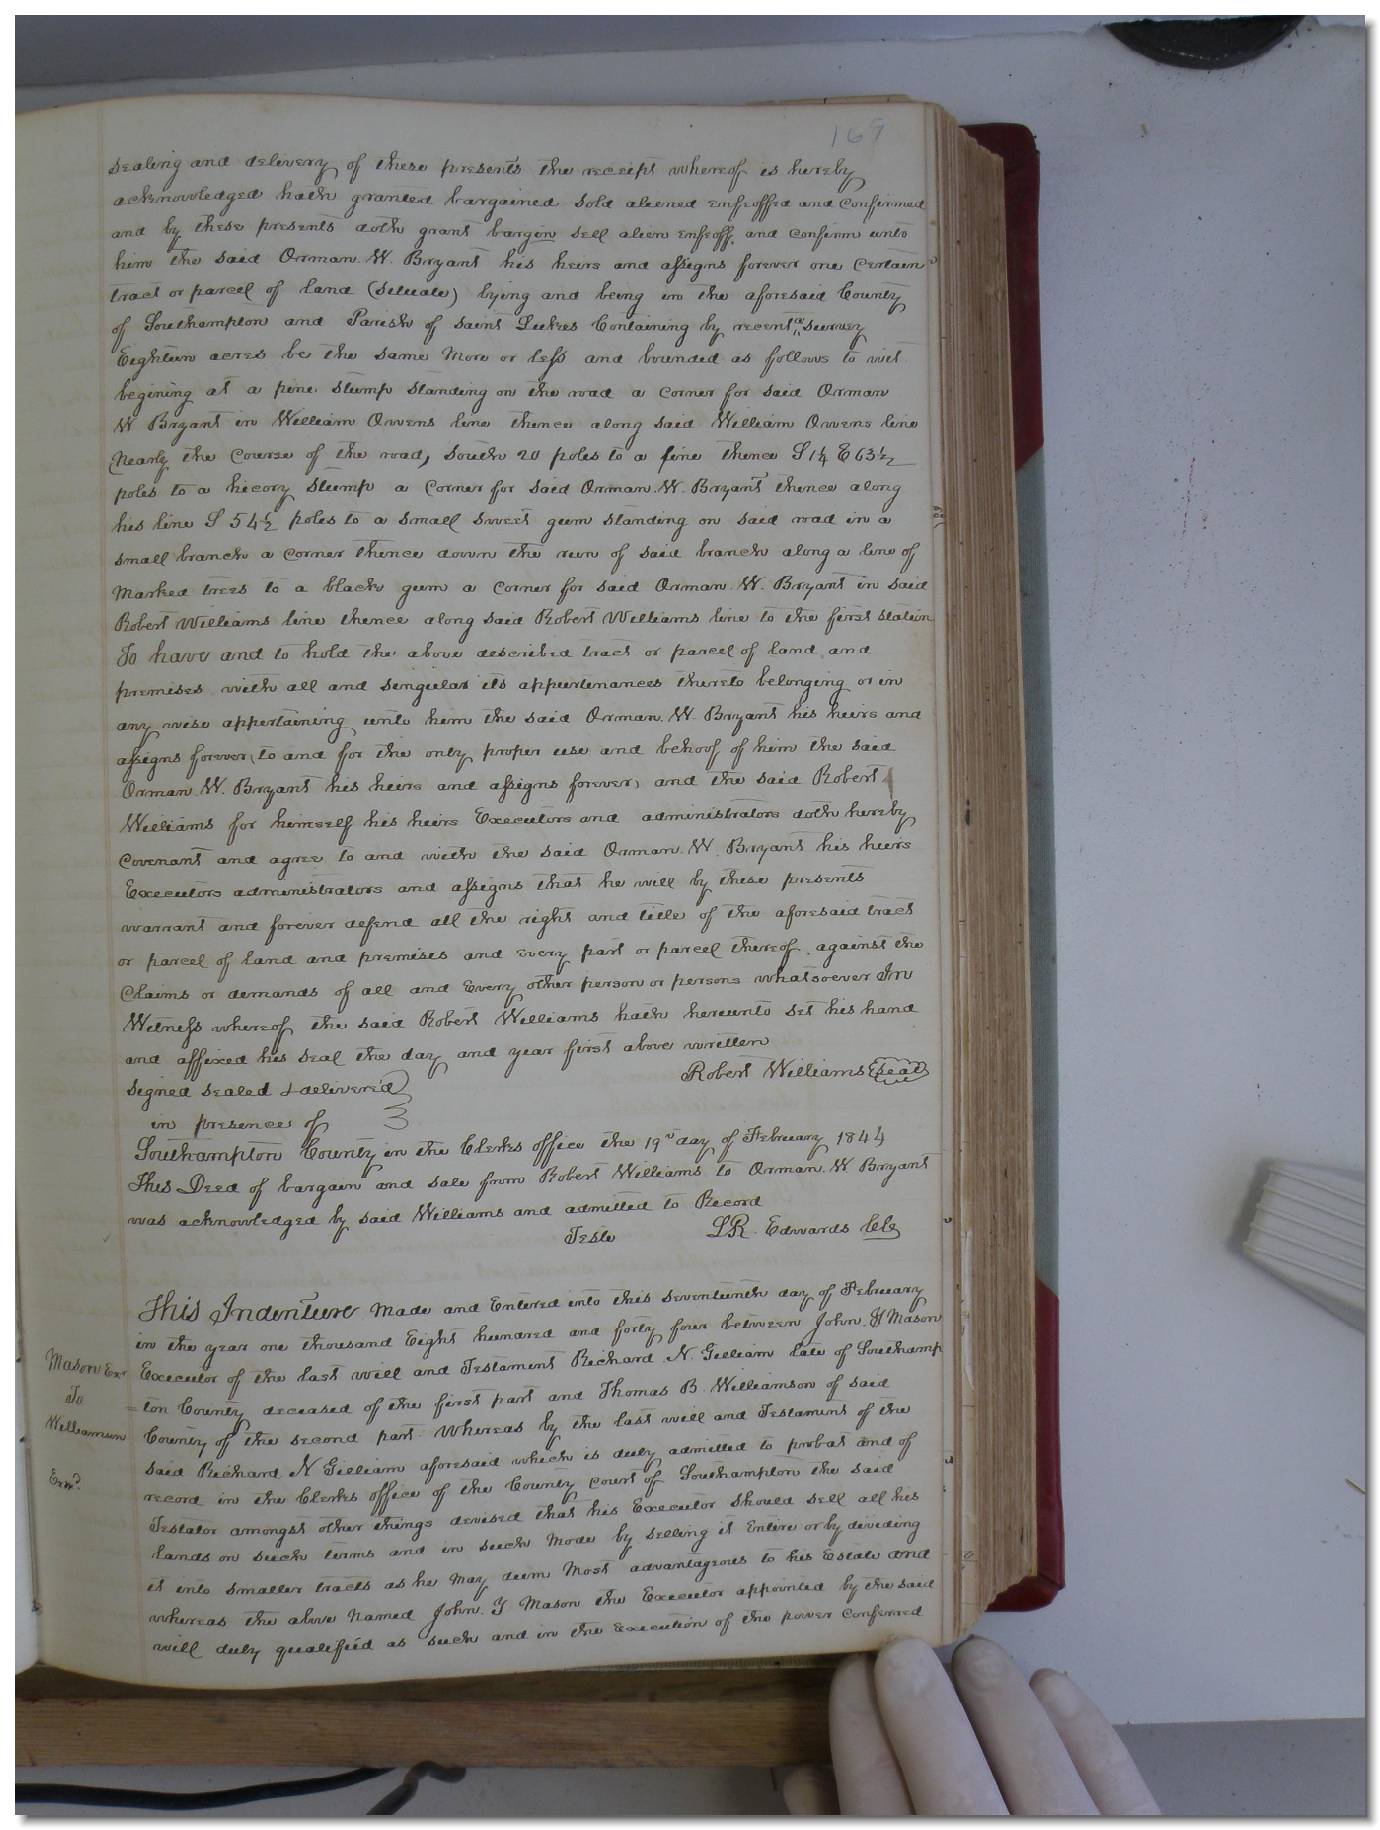 169
sealing and delivery of these presents the receipt whereof is hereby
acknowledged hath granted bargained sold aliened enfeoffed and Confirmed
and by these presents doth grant bargin sell alien enfeoff and confirm unto
him the said Orman. W. Bryant his heirs and assigns forever one Certain
tract or parcel of land (Situate) lying and being in the aforesaid County
of Southampton and Parish of saint Lukes Containing by recent a survey
Eighteen acres be the same More or less and bounded as follows to wit
begining at a pine stump standing on the road a corner for said Orman
W Bryant in William Owens line thence along said William Owens line
Nearly the Course of the road, South 20 poles to a pine thence S 1¼ E 63½
poles to a hicory stump a Corner for said Orman. W. Bryant thence along
his line S 54½ poles to a small sweet gum standing on said road in a
small branch a corner thence down the run of said branch along a line of
Marked trees to a black gum a corner for said Orman. W. Bryant in said
Robert Williams line thence along said Robert Williams line to the first station
To have and to hold the above described tract or parcel of land and
premises with all and singular its appurtinances thereto belonging or in
any wise appertaining unto him the said Orman. W. Bryant his heirs and
assigns forever, to and for the only proper use and behoof of him the said
Orman. W. Bryant his heirs and assigns forever, and the said Robert
Williams for himself his heirs Executors and administrators doth hereby
Covenant and agree to and with the said Orman. W. Bryant his heirs
Executors administrators and assigns that he will by these presents
warrant and forever defend all the right and title of the aforesaid tract
or parcel of land and premises and every part or parcel thereof. against the
Claims or demands of all and Every other person or persons whatsoever In
Witness whereof the said Robert Williams hath hereunto set his hand
and affixed his seal the day and year first above written
Robert Williams Seal
Signed sealed & delivered
in presence of
Southampton County in the Clerks office the 19th day of February 1844
This Deed of bargain and sale from Robert Williams to Orman. W Bryant
was acknowledged by said Williams and admitted to Record
Teste L R. Edwards Clk
This Indenture Made and Entered into this seventeenth day of February
in the year one thousand Eight hundred and forty four between John. Y Mason
Mason Exr Executor of the last will and Testament Richard. N. Gilliam late of Southamp
To = ton County deceased of the first part and Thomas B. Williamson of said
Williamson County of the second part. Whereas by the last will and Testament of the
said Richard. N Gilliam aforesaid which is duly admitted to probat and of
Exd. record in the Clerks office of the County Court of Southampton the said
Testator amongst other things devised that his Executor should sell all his
lands on such terms and in such Mode by selling it Entire or by dividing
it into smaller tracts as he May deem Most advantageous to his Estate and
whereas the above Named John. Y Mason the Executor appointed by the said
will duly qualified as such and in the Execution of the power Conferred